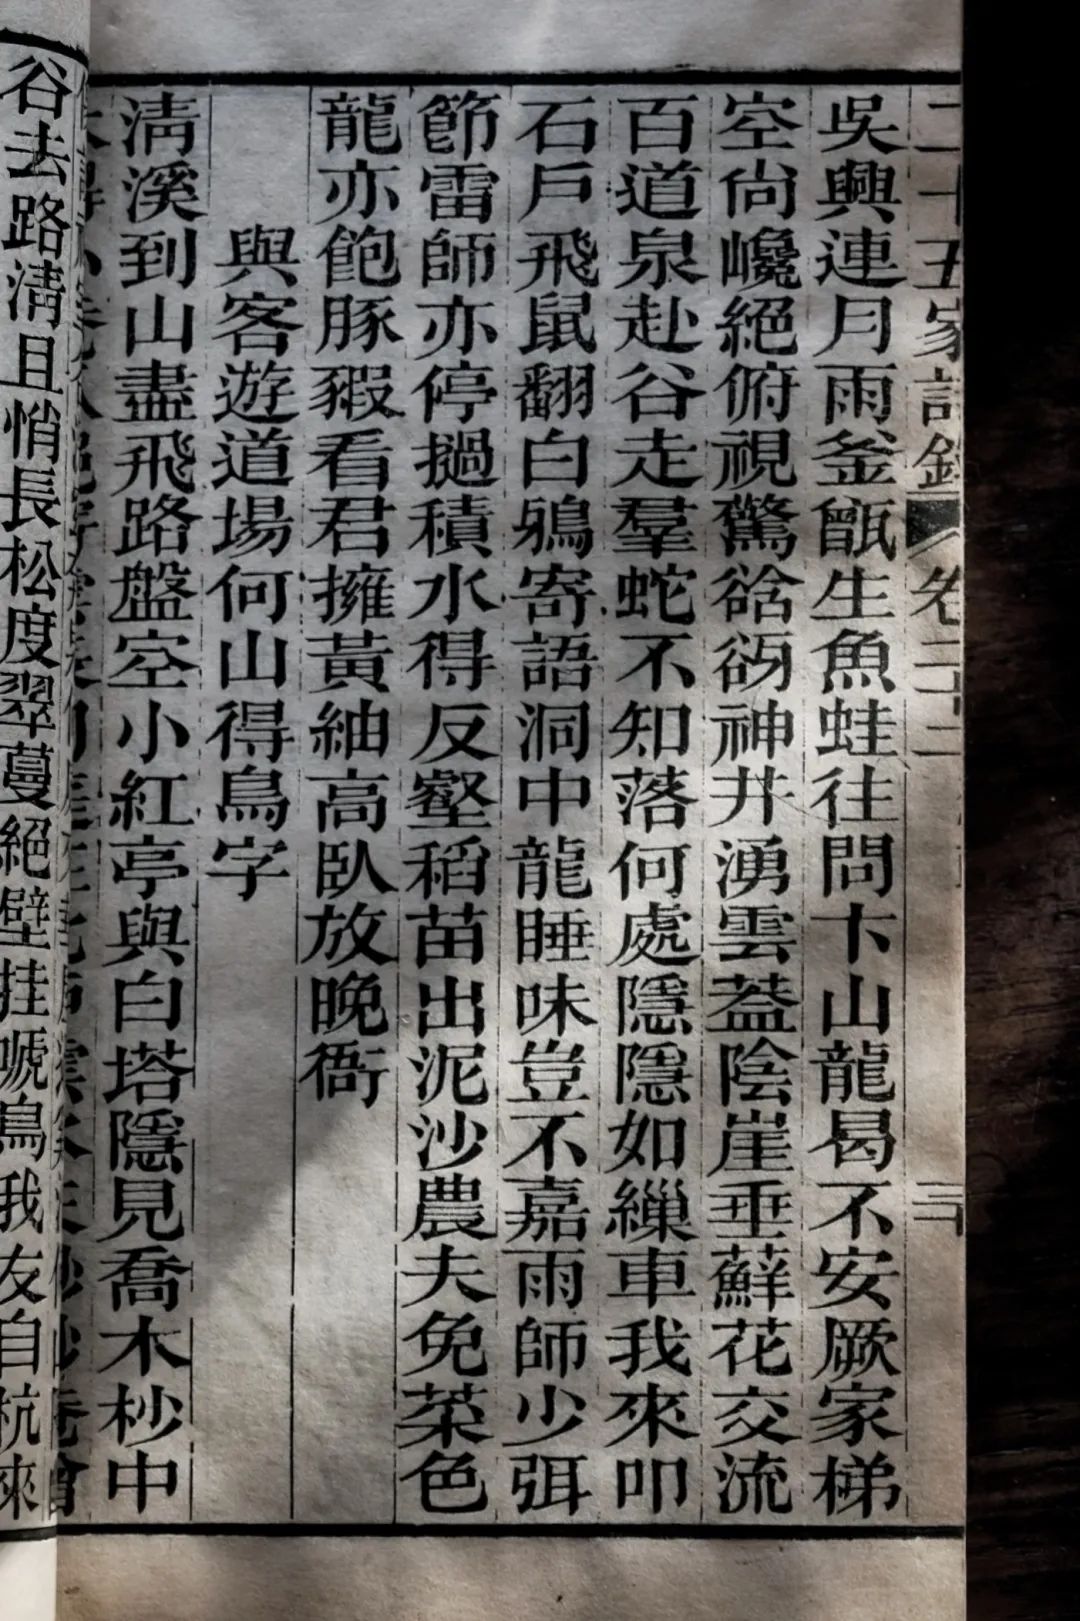 吳興連月雨釜甑生魚蛙往問卞山龍曷不安厥家梯
空尙巉絕俯視驚谽谺神井湧雲葢陰崖垂蘚花交流
百道泉赴谷走羣蛇不知落何處隱隱如繅車我來叩
石戶飛鼠翻白鴉寄語洞中龍睡味豈不嘉雨師少弭
節雷師亦停撾積水得反壑稻苗出泥沙農夫免菜色
龍亦飽豚豭看君擁黃紬高臥放晚衙
與客遊道場何山得鳥字
淸溪到山盡飛路盤空小紅亭與白塔隱見喬木杪中
谷去路淸且悄長松度翠蔓絕壁挂啼鳥我友自杭來